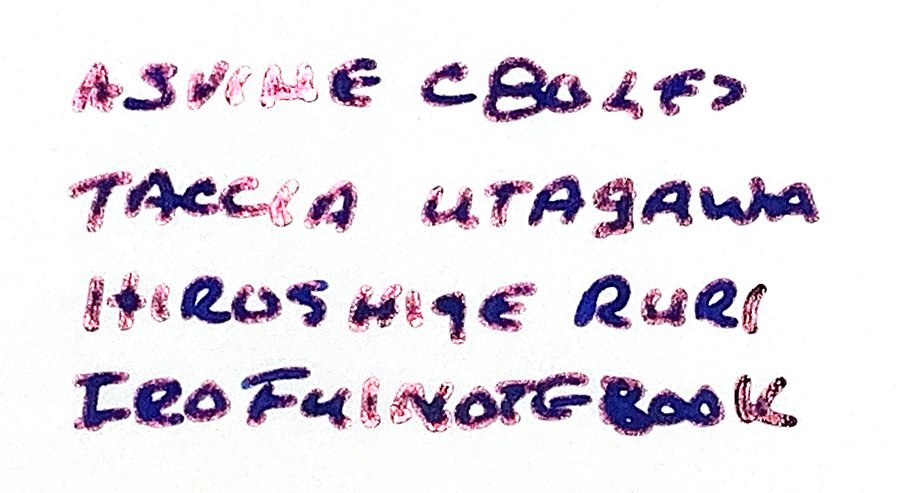 ASVINE C80 LES
TACCIA UTAGAWA
HIROSHIGE RURI
IROFUL NOTEBOOK